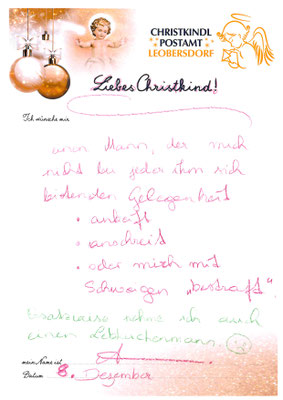 CHRISTKINDL
POSTAMT
LEOBERSDORF
Liebes Christkind!
Ich wünsche mir
einen Mann, der mich
nicht bei jeder ihm sich
bietenden Gelegenheit
• ankeift
• anschreit
• oder mich mit
Schweigen „bestraft".
Ersatzweise nehme ich auch
einen Lebkuchenmann.
mein Name ist
Datum 8. Dezember